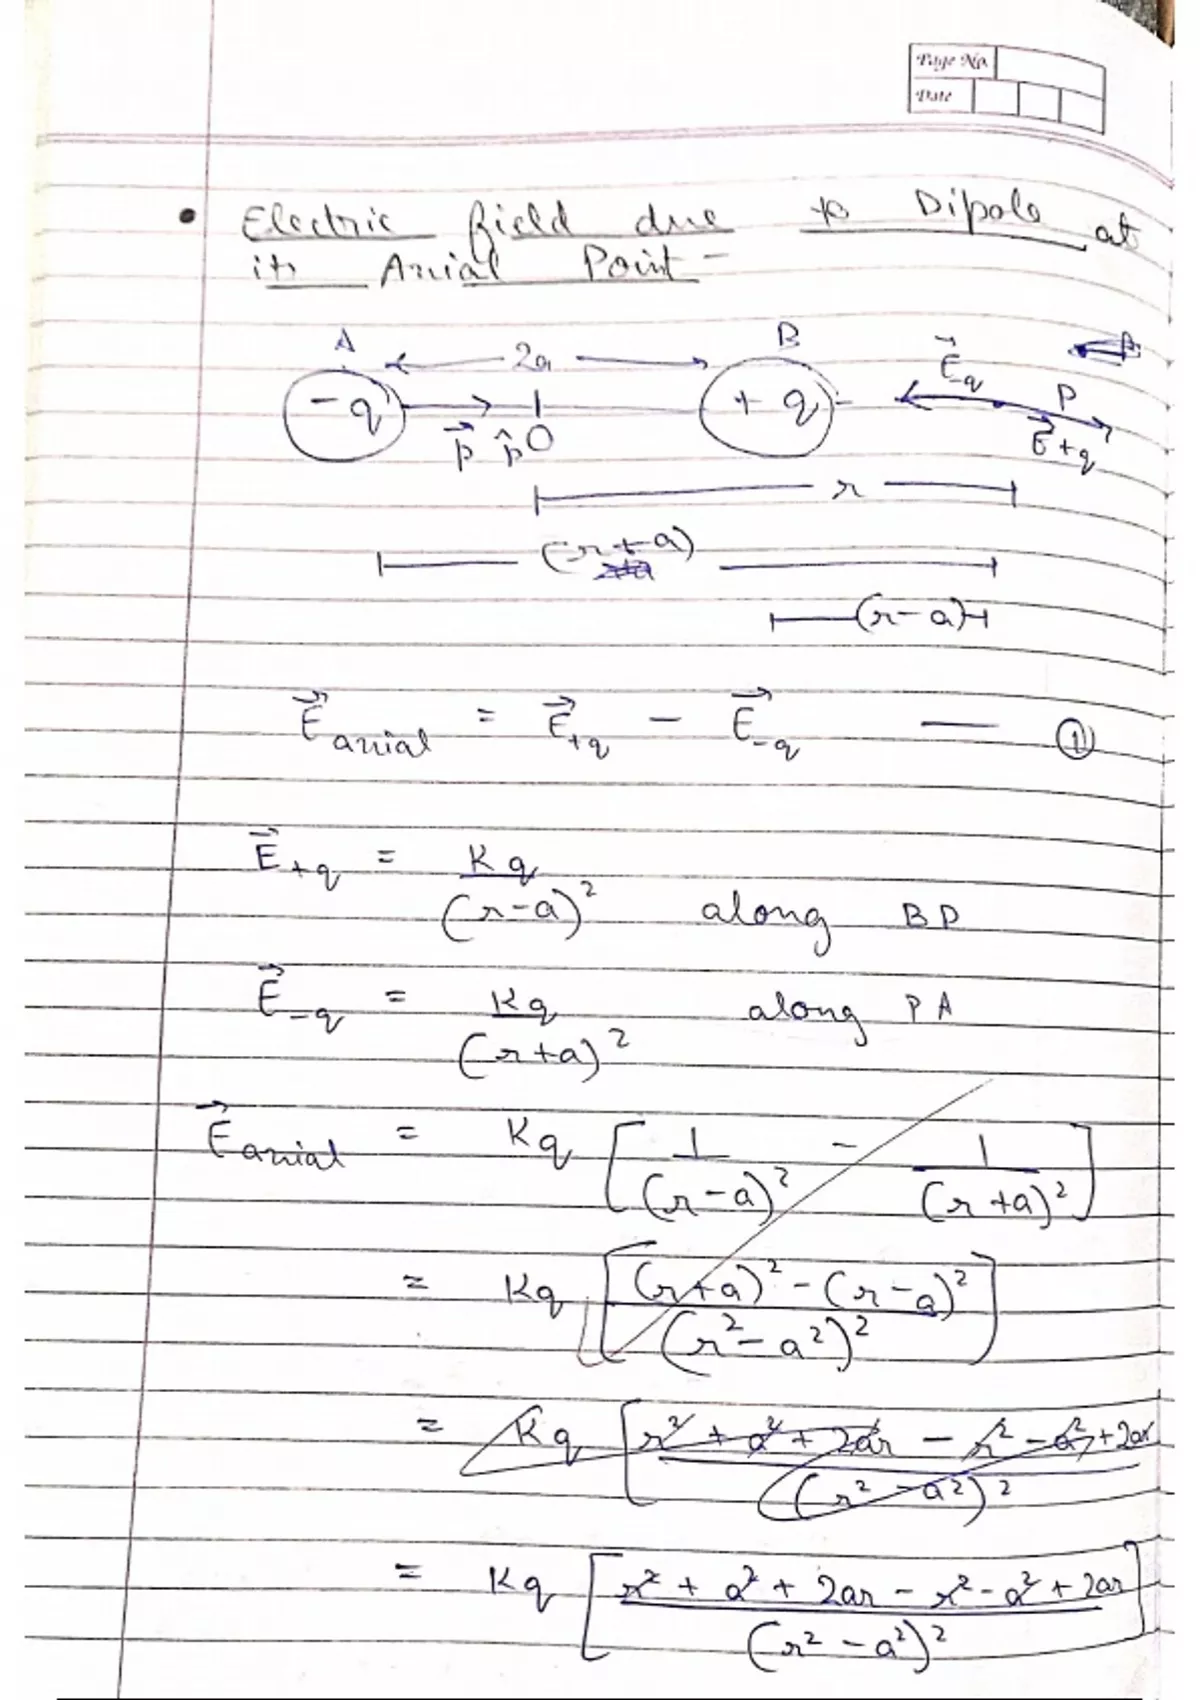 Page No.
Date
• Electric field due to Dipole at
its Axial Point -
A 2a B
-q +q
E⃗-q P
p⃗ p̂ O E⃗+q
r
(r+a)
(r-a)
E⃗axial = E⃗+q - E⃗-q — ①
E⃗+q = Kq/(r-a)² along BP
E⃗-q = Kq/(r+a)² along PA
E⃗axial = Kq [1/(r-a)² - 1/(r+a)²]
= Kq [((r+a)² - (r-a)²)/(r²-a²)²]
= Kq [(r² + a² + 2ar - r² - a² + 2ar)/(r²-a²)²]
= Kq [(r² + a² + 2ar - r² - a² + 2ar)/(r²-a²)²]